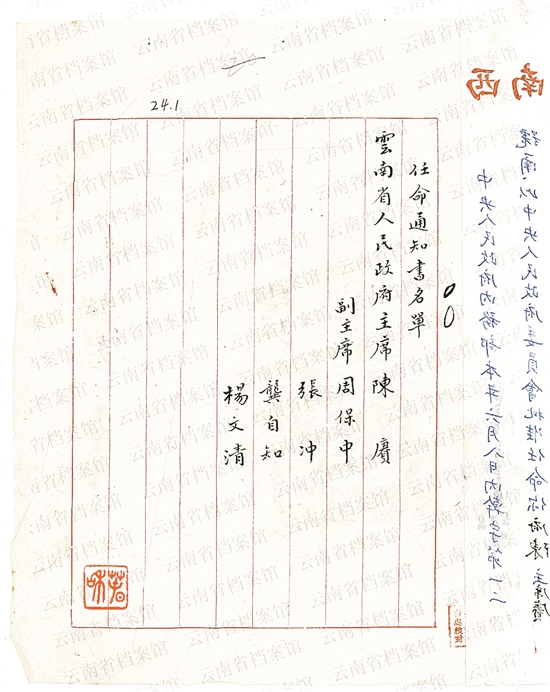 24.1
任命通知書名單
雲南省人民政府主席陳 賡
副主席周保中
張 冲
龔自知
楊文清
西南
中央人民政府內務部本年六月八日內幹字第一二
號函,以中央人民政府委員會批准任命你府陳
云南省档案馆